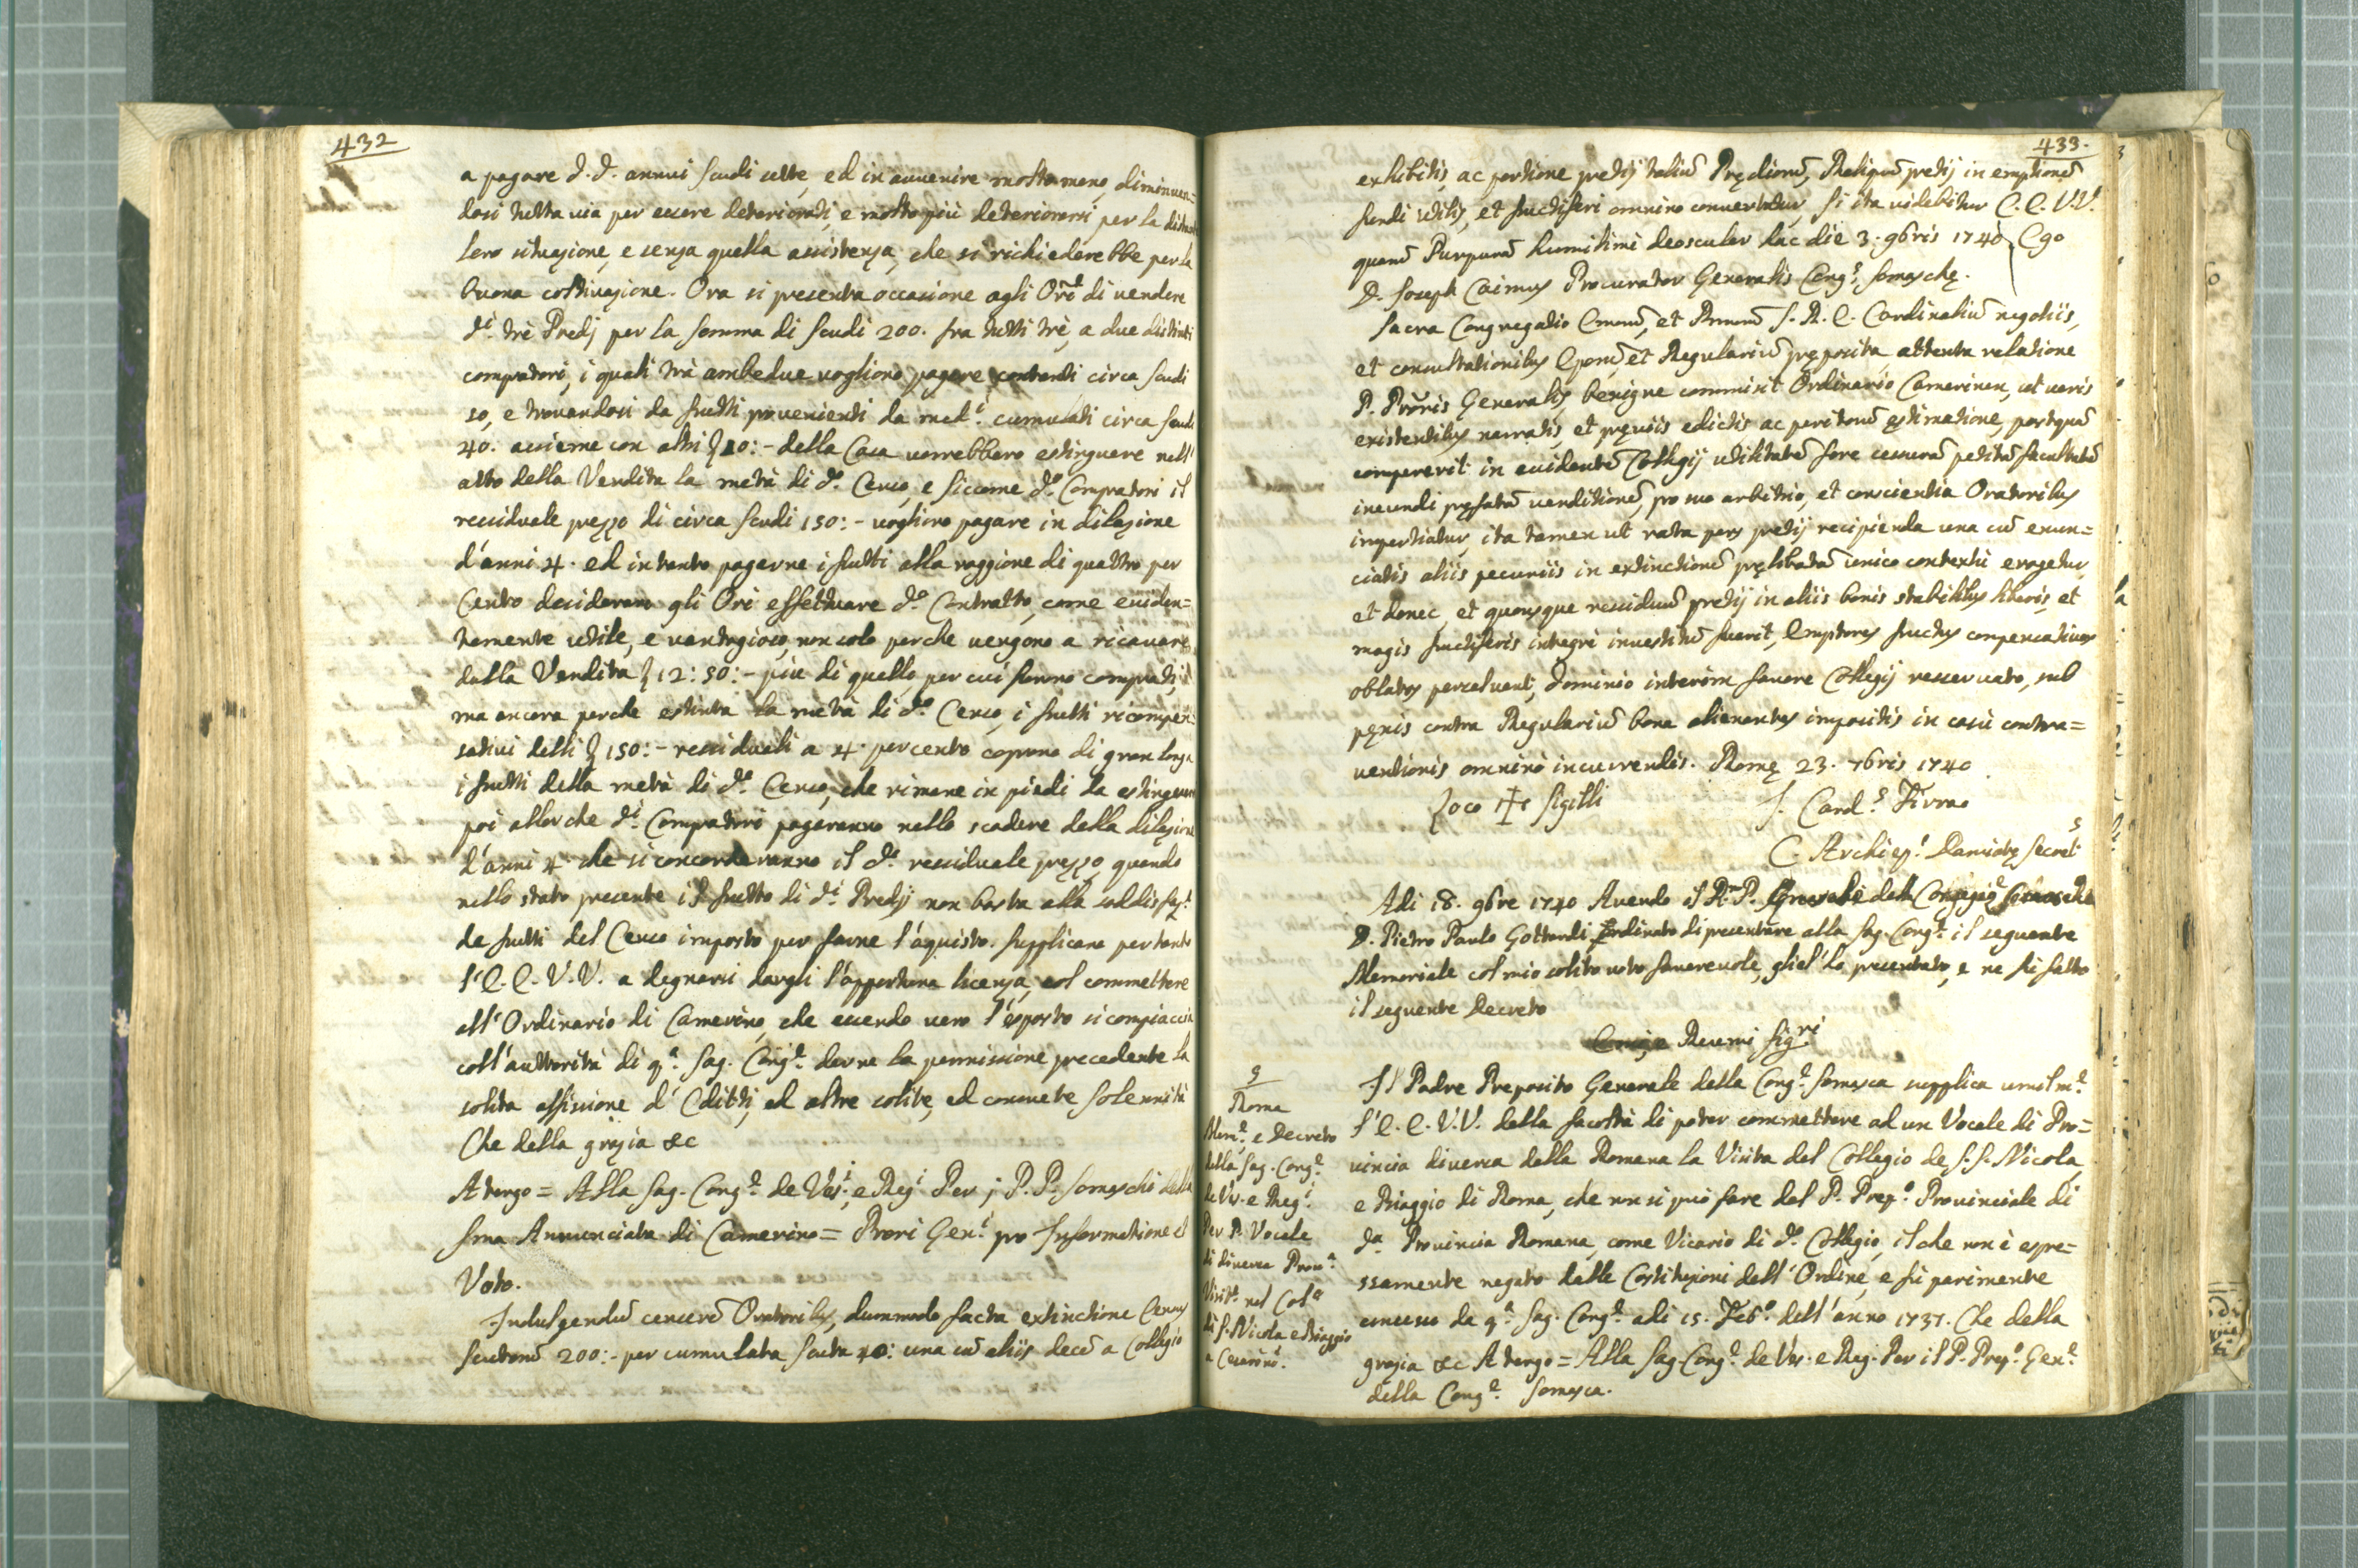 432
a pagare d.d. annui scudi sette, ed in avvenire molto meno, diminuen=
dosi tutta via per essere deteriorati, e molto più deteriorarsi per la distante
loro situazione, e senza quella assistenza, che si richiederebbe per la
buona coltivazione. Ora si presenta occasione agli Ori di vendere
di trè Predj per la somma di scudi 200. fra tutti trè, a due distinti
compratori, i quali trà ambedue vogliono pagare contanti circa scudi
50, e trovandosi da frutti provenienti da med.i cumulati circa scudi
40. assieme con altri 10:- della Casa vorrebbero estinguere nell'
atto della Vendita la metà di d.o Censo, e siccome d.i Compratori il
residuale prezzo di circa scudi 150:- vogliono pagare in dilazione
d'anni 4. ed intanto pagarne i frutti alla raggione di quattro per
Cento desiderano gli Ori effettuare d.o Contratto, come eviden=
temente utile, e vantagioso, non solo perche vengono a ricavare
dalla Vendita 12:50:- più di quello, per cui furono comprati,
ma ancora perche estinta la metà di d.o Censo, i frutti ricompen=
sativi delli 150:- residuali a 4. per cento copono di gran longa
i frutti della metà di d.o Censo, che rimane in piedi da estinguersi
poi allor che d.i Compratori pagaranno nello scadere della dilazione
d'anni 4. che si concordaranno il d.o residuale prezzo, quando
nello stato presente il frutto di d.i Predij non basta alla soddisfaz.e
de frutti del Censo imposto per farne l'aquisto. Supplicano pertanto
l'E.E. V.V. a degnarsi dargli l'opportuna licenza, col commettere
all'Ordinario di Camerino, che essendo vero l'esposto si compiaccia
coll'auttorità di q.a Sag. Cong.e darne la permissione precedente la
solita affissione d'Editti, ed altre solite, ed consuete solennità
Che della grazia &c
A tergo = Alla Sag. Cong.e de Ves.i e Reg.i Per j P.P. Somaschi della
Sma Annunciata di Camerino = Prori Gen.i pro Informatione et
Voto.
Indulgendũ censerẽ Oratoribus, dummodo facta extinctione Census
scutorũ 200:- per cumulata scuta 40: una cũ aliis decẽ a Collegio
433.
exhibitis, ac portione pretij taliũ Prędiorũ, Reliquũ pretij in emptionẽ
fundi utilis, et fructiferi omnino convertatur, si ita videbitur E.E. V.V.
quarũ Purpurã humilimè deosculor hac die 3. 9bris 1740. Ego
D. Joseph Caimus Procurator Generalis Cong.s Somaschę.
Sacra Congregatio Emorũ, et Rmorũ S.R.E. Cardinaliũ negotiis,
et consultationibus Eporũ, et Regulariũ pręposita, attenta relatione
P. Proris Generalis, benigne commisit Ordinario Camerinen, ut veris
existentibus narratis, et pręviis edictis ac peritorũ ęstimatione, postquã
compererit in evidentẽ Collegij utilitatẽ fore cessurã petitã facultatẽ
ineundi pręfatã venditionẽ, pro suo arbitrio, et conscientia Oratoribus
impertiatur, ita tamen ut rata pars pretij recipienda una cũ enun=
ciatis aliis pecuniis in extinctionẽ pręlibatã unico contextu erogetur,
et donec, et quousque residuũ pretij in aliis bonis stabilibus liberis, et
magis fructiferis integrè investitũ fuerit, Emptores fructus compensativos
oblatos persolvant, dominio interim favore Collegij reservato, sub
pęnis contra Regulariũ bona alienantes impositis in casu contra=
ventionis omninò incurrendis. Romę 23. 7bris 1740
Loco ✝ Sigilli J. Card.s Firrao
C. Archiep.s Damiatę Secret.s
Adi 18. 9bre 1740 Avendo il R.mo P. Generale della Congreg.e Somasca
D. Pietro Paulo Gottardi ordinato di presentare alla Sag. Cong.e il seguente
Memoriale col mio solito voto favorevole, gliel'ho presentato, e ne fù fatto
il seguente Decreto
Emi, e Revmi Sig.ri
Il Padre Preposito Generale della Cong.e Somasca supplica umilm.e
l'E.E. V.V. della facoltà di poter commettere ad un Vocale di Pro=
vincia diversa dalla Romana la Visita del Collegio de S.S. Nicola,
e Biaggio di Roma, che non si può fare dal P. Prep.o Provinciale di
d.a Provincia Romana, come Vicario di d.o Collegio, il che non è espre=
ssamente negato dalle Costituzioni dell'Ordine, e fù parimente
concesso da q.a Sag. Cong.e adi 15. Feb.o dell'anno 1737. Che della
grazia &c A tergo = Alla Sag. Cong.e de Ves. e Reg. Per il P. Prep.o Gen.e
della Cong.e Somasca.
9
Roma
Mem.e e Decreto
della Sag. Cong.e
de Ves. e Reg.i
Per P. Vocale
di diversa Prov.a
Visit.e nel Col.o
di S. Nicola e Biaggio
a Cesarini.